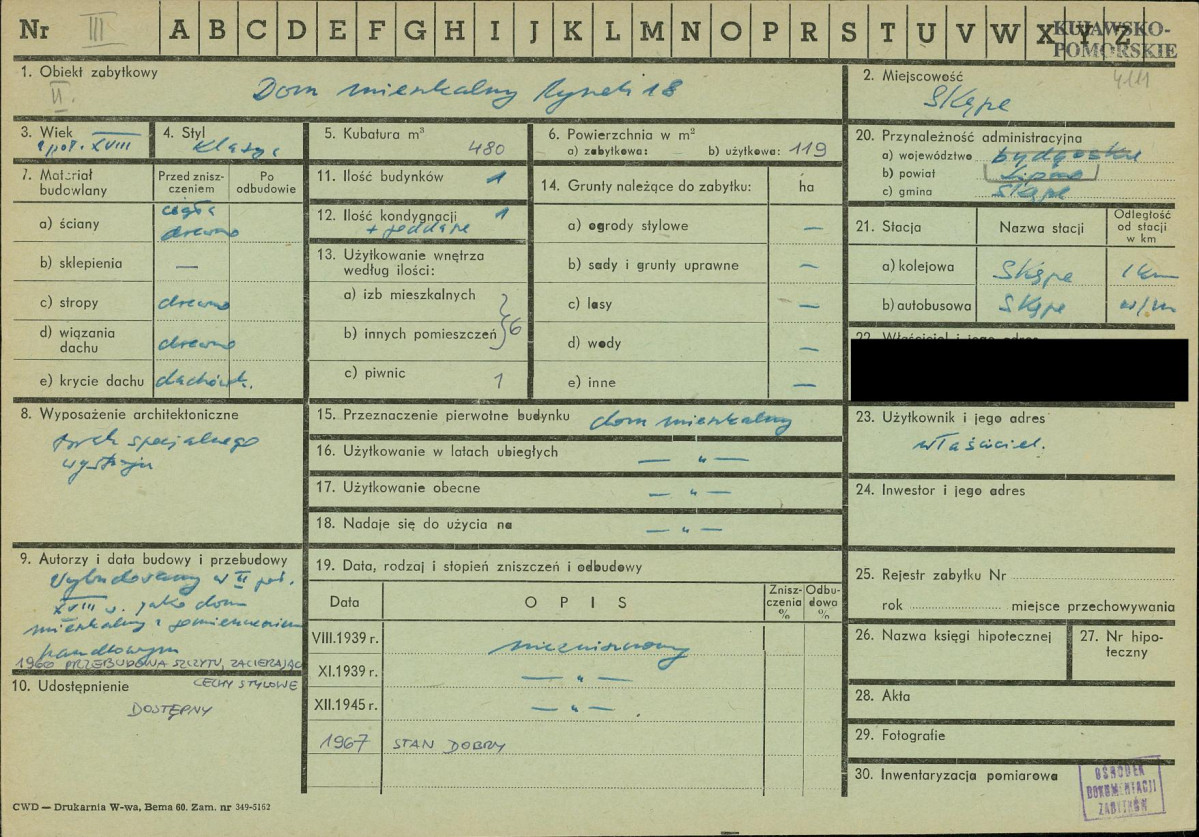 Nr III A B C D E F G H I J K L M N O P R S T U V W X Y Z
KUJAWSKO-
POMORSKIE
4111
1. Obiekt zabytkowy
II.
Dom mieszkalny Rynek 18
2. Miejscowość
Skępe
3. Wiek
XVIII
4. Styl
5. Kubatura m³
480
6. Powierzchnia w m²
a) zabytkowa: b) użytkowa: 119
20. Przynależność administracyjna
a) województwo bydgoskie
b) powiat Lipno
c) gmina Skępe
7. Materiał
budowlany
Przed znisz-
czeniem
Po
odbudowie
a) ściany
cegła
drewno
b) sklepienia —
c) stropy drewno
d) wiązania
dachu drewno
e) krycie dachu dachówk.
11. Ilość budynków 1
12. Ilość kondygnacji 1
+ poddasze
13. Użytkowanie wnętrza
według ilości:
a) izb mieszkalnych
b) innych pomieszczeń } 6
c) piwnic 1
14. Grunty należące do zabytku: ha
a) ogrody stylowe —
b) sady i grunty uprawne —
c) lasy —
d) wody —
e) inne —
21. Stacja Nazwa stacji
Odległość
od stacji
w km
a) kolejowa Skępe 1 km
b) autobusowa Skępe w/m
22. Właściciel i jego adres
8. Wyposażenie architektoniczne
brak specjalnego
wystroju
15. Przeznaczenie pierwotne budynku dom mieszkalny
16. Użytkowanie w latach ubiegłych — " —
17. Użytkowanie obecne — " —
18. Nadaje się do użycia na — " —
23. Użytkownik i jego adres
właściciel.
24. Inwestor i jego adres
9. Autorzy i data budowy i przebudowy
Wybudowany w II poł.
XVIII w. jako dom
mieszkalny z pomieszczeniem
handlowym
1960 PRZEBUDOWA SZCZYTU, ZACIERAJĄC
CECHY STYLOWE
10. Udostępnienie
DOSTĘPNY
19. Data, rodzaj i stopień zniszczeń i odbudowy
Data OPIS
Znisz-
czenia
%
Odbu-
dowa
%
VIII.1939 r. niezniszczony
XI.1939 r. — " —
XII.1945 r. — " —
1967 STAN DOBRY
25. Rejestr zabytku Nr
rok miejsce przechowywania
26. Nazwa księgi hipotecznej
27. Nr hipo-
teczny
28. Akta
29. Fotografie
30. Inwentaryzacja pomiarowa
OŚRODEK
DOKUMENTACJI
ZABYTKÓW
CWD — Drukarnia W-wa, Bema 60. Zam. nr 349-5162